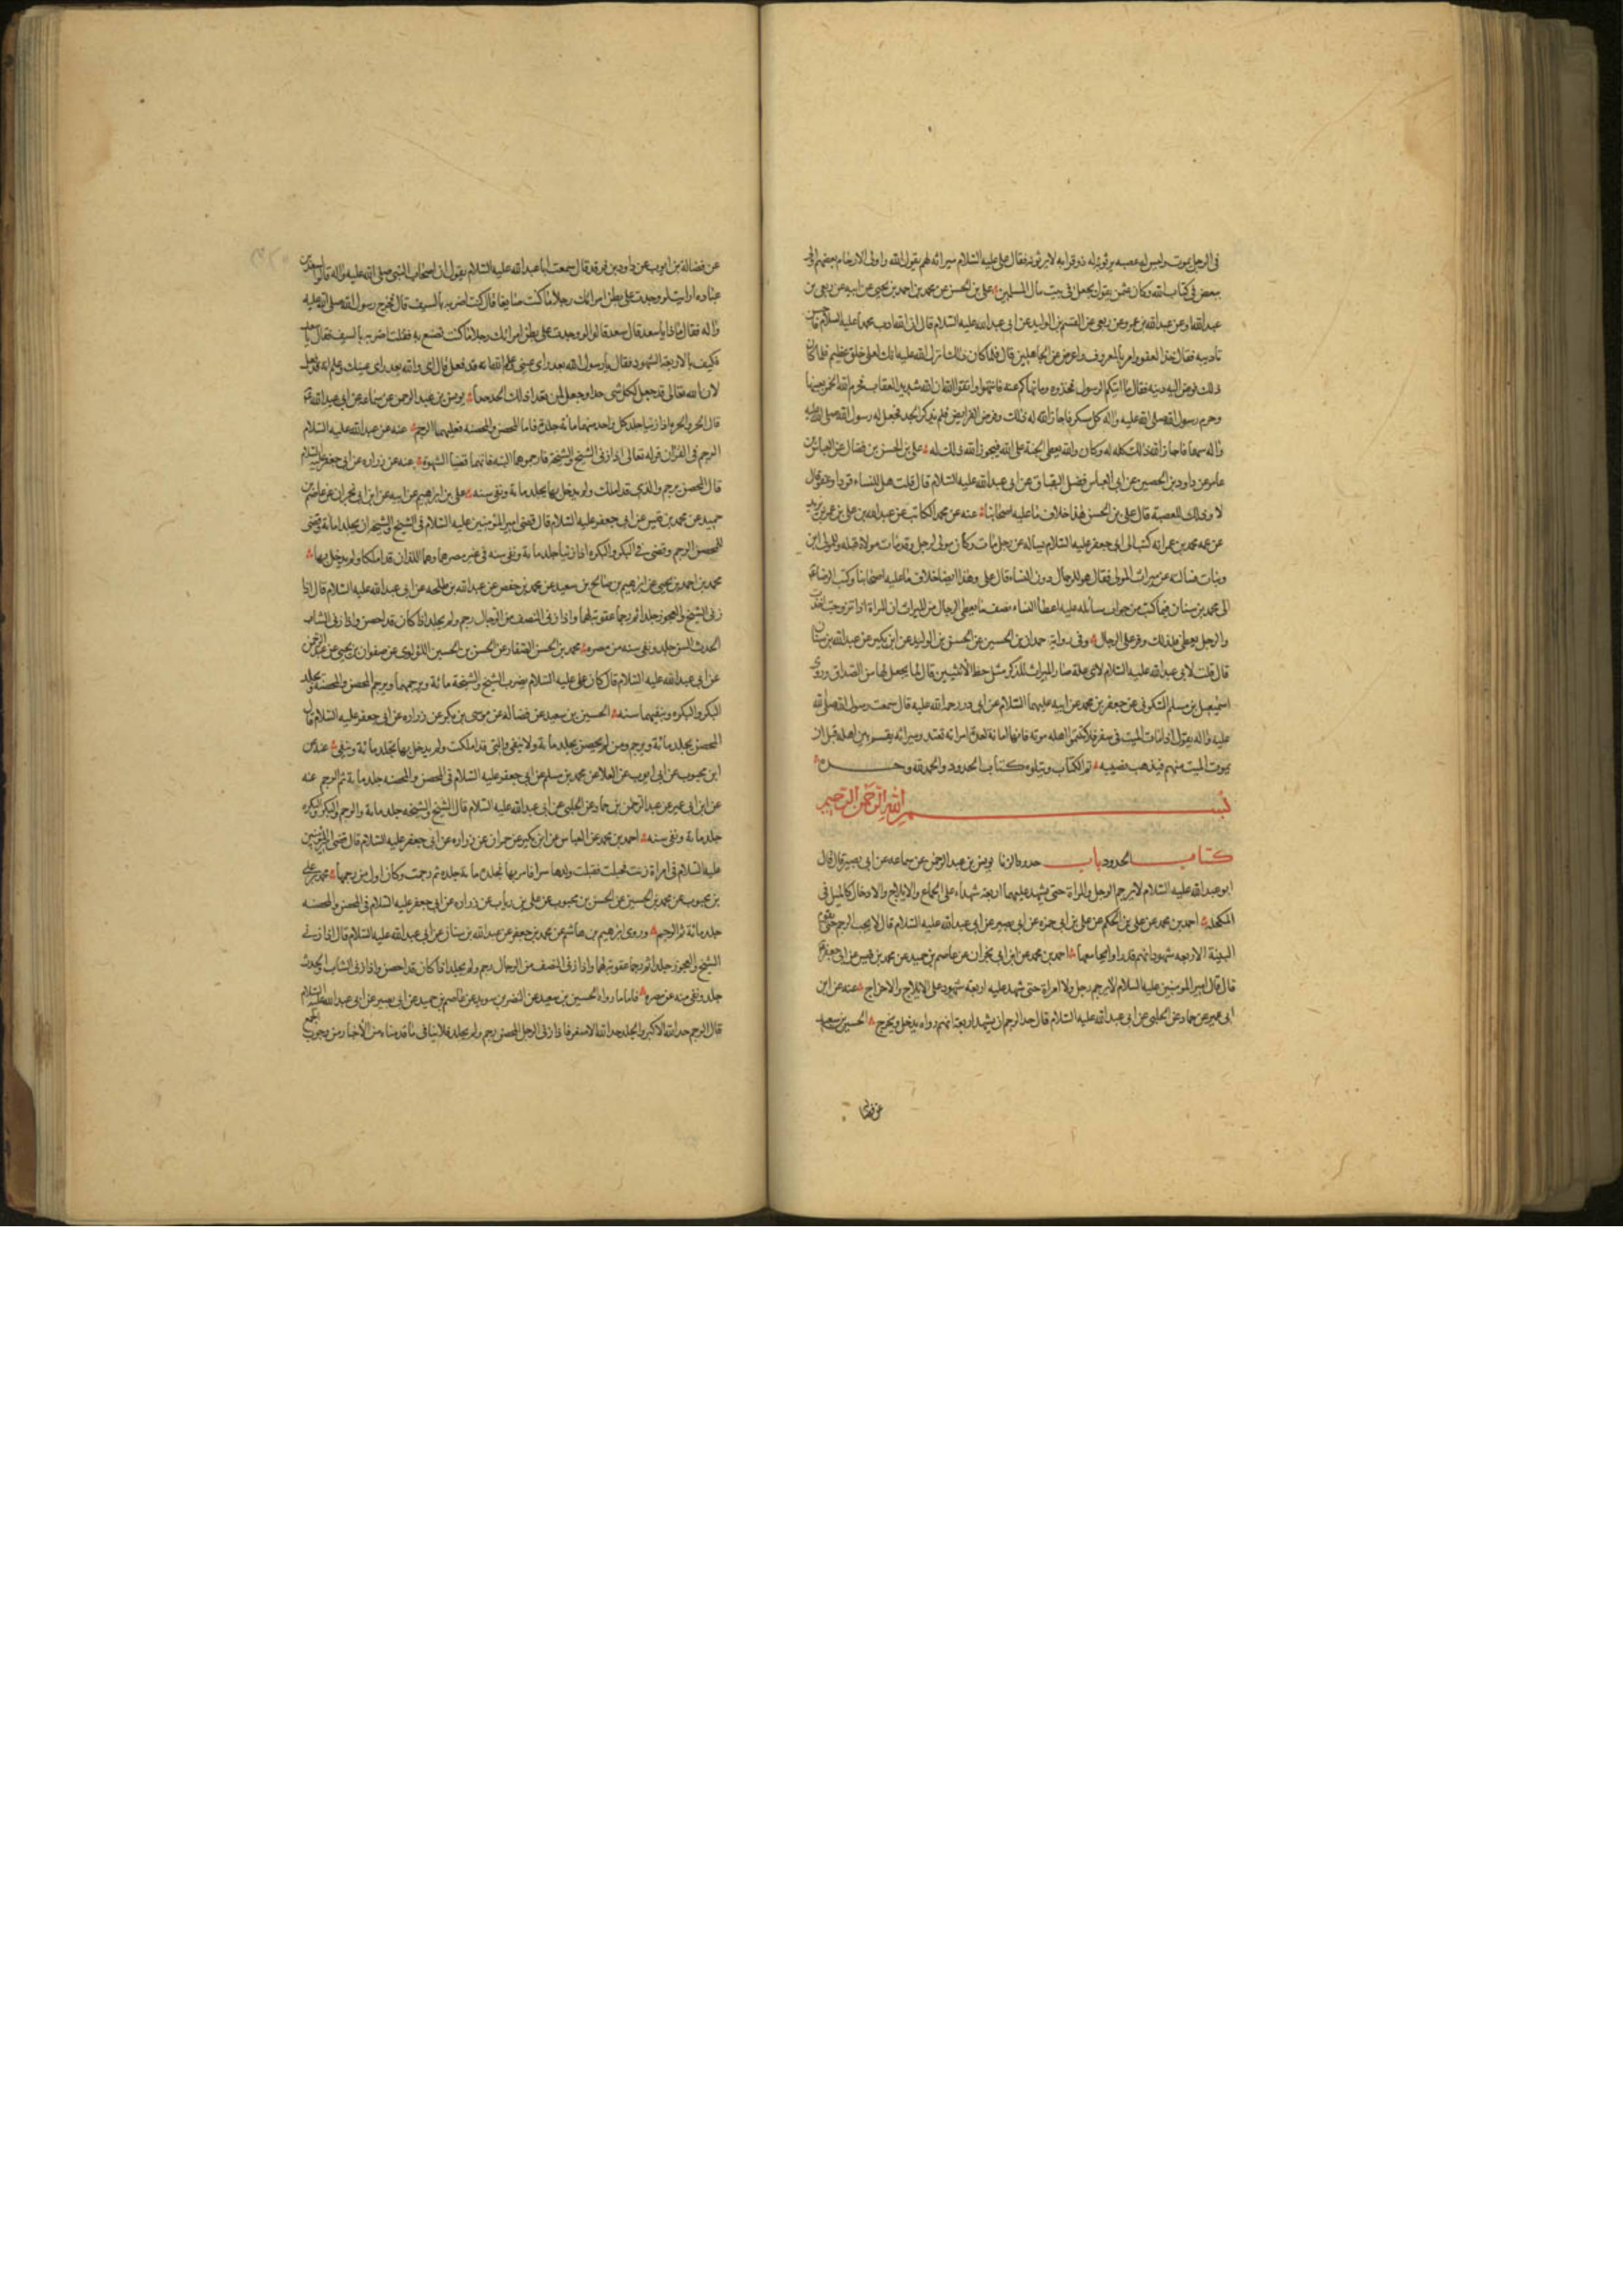 في الرجل يموت وليس له عصبه يرثونه وله ذو قرابه لا يرثونه فقال علي عليه السلام ميراثه لهم يقول الله واولى الارحام بعضهم اولى
ببعض في كتاب الله وكان عثمن يقول يجعل في بيت مال المسلمين علي بن الحسن عن محمد بن احمد بن يحيى عن ابيه عن ربعي بن
عبد الله وعن عبد الله بن عمرو عن ربعي عن القسم بن الوليد عن ابي عبد الله عليه السلام قال ان الله ادب محمدا عليه السلام
تاديبه فقال خذ العفو وامر بالمعروف واعرض عن الجاهلين قال فلما كان ذلك انزل الله عليه انك لعلى خلق عظيم فلما كان
ذلك فوض اليه دينه فقال ما اتيكم الرسول فخذوه وما نهاكم عنه فانتهوا واتقوا الله ان الله شديد العقاب فحرم الله الخمر بعينها
وحرم رسول الله صلى الله عليه واله كل مسكر فاجاز الله له ذلك وفرض الفرايض فلم يذكر الجد فجعل له رسول الله صلى الله عليه
واله سهما فاجاز الله ذلك كله له وكان والله يعطي الجنة على الله فيجوز الله ذلك له علي بن الحسن بن فضال عن العباس بن
عامر عن داود بن الحصين عن ابي العباس فضل البقباق عن ابي عبد الله عليه السلام قال قلت هل للنساء قود او عفو قال
لا وذلك للعصبة قال علي بن الحسن هذا خلاف ما عليه اصحابنا عنه عن محمد الكاتب عن عبد الله بن علي بن عمر بن يزيد
عن عمه محمد بن عمر انه كتب الى ابي جعفر عليه السلام يساله عن رجل مات وكان مولى لرجل وقد مات مولاه قبله وللمولى ابن
وبنات فسالته عن ميراث المولى فقال هو للرجال دون النساء قال علي وهذا ايضا خلاف ما عليه اصحابنا وكتب الرضا
الى محمد بن سنان فيما كتب من جواب مسائله عليه اعطا النساء نصف ما يعطى الرجال من الميراث ان المراة اذا تزوجت اخذت
والرجل يعطي فلذلك وفر على الرجال وفي رواية حمدان بن الحسين عن الحسن بن الوليد عن ابن بكير عن عبد الله بن سنان
قال قلت لابي عبد الله عليه السلام لاي علة صار الميراث للذكر مثل حظ الانثيين قال لما يجعل لها من الصداق وروى
اسمعيل بن مسلم السكوني عن جعفر بن محمد عن ابيه عليهما السلام عن ابي ذر رحمة الله عليه قال سمعت رسول الله صلى الله
عليه واله يقول اذا مات الميت في سفر فلا تكتموا اهله موته فانها امانة لعدة امراته تعتد وميراثه يقسم بين اهله قبل ان
يموت الميت منهم فيذهب نصيبه تم الكتاب ويتلوه كتاب الحدود والحمد لله وحده
بسم الله الرحمن الرحيم
كتاب الحدود باب حدود الزنا يونس بن عبد الرحمن عن سماعه عن ابي بصير قال قال
ابو عبد الله عليه السلام لا يرجم الرجل والمراة حتى يشهد عليهما اربعة شهداء على الجماع والايلاج والادخال كالميل في
المكحله احمد بن محمد عن علي بن الحكم عن علي بن ابي حمزه عن ابي بصير عن ابي عبد الله عليه السلام قال لا يجب الرجم حتى تقوم
البينة الاربعه شهود انهم قد راوه يجامعها احمد بن محمد عن ابن ابي نجران عن عاصم بن حميد عن محمد بن قيس عن ابي جعفر
قال قال امير المومنين عليه السلام لا يرجم رجل ولا امراة حتى شهد عليه اربعة شهود على الايلاج والاخراج عنه عن ابن
ابي عمير عن حماد عن الحلبي عن ابي عبد الله عليه السلام قال حد الرجم ان يشهد اربعة انهم رواه يدخل ويخرج الحسين بن سعيد
عن فضاله
عن فضالة بن ايوب عن داود بن فرقد قال سمعت ابا عبد الله عليه السلام يقول ان اصحاب النبي صلى الله عليه واله قالوا لسعد بن
عباده ارايت لو وجدت على بطن امراتك رجلا ما كنت صانعا قال كنت اضربه بالسيف قال فخرج رسول الله صلى الله عليه
واله فقال ماذا يا سعد قال سعد قالوا لو وجدت على بطن امراتك رجلا ما كنت تصنع به فقلت اضربه بالسيف فقال يا سعد
فكيف بالاربعة الشهود فقال يا رسول الله بعد راي عيني وعلم الله انه قد فعل قال اي والله بعد راي عينك وعلم الله انه قد فعل
لان الله تعالى قد جعل لكل شي حدا وجعل لمن تعدا ذلك الحد حدا يونس بن عبد الرحمن عن سماعه عن ابي عبد الله
قال الحر والحره اذا زنيا جلد كل واحد منهما مائة جلدة فاما المحصن والمحصنه فعليهما الرجم عنه عن عبد الله عليه السلام
الرجم في القران قوله تعالى اذا زنى الشيخ والشيخة فارجموهما البته فانهما قضيا الشهوة عنه عن زراره عن ابي جعفر عليه السلام
قال المحصن يرجم والذي قد املك ولم يدخل بها يجلد مائة ونفي سنه علي بن ابراهيم عن ابيه عن ابن ابي نجران عن عاصم بن
حميد عن محمد بن قيس عن ابي جعفر عليه السلام قال قضى امير المؤمنين عليه السلام في الشيخ والشيخه ان يجلدا مائة وقضى
للمحصن الرجم وقضى في البكر والبكره اذا زنيا جلد مائة ونفي سنه في غير مصرهما وهما اللذان قد املكا ولم يدخل بها
محمد بن احمد بن يحيى عن ابرهيم بن صالح بن سعيد عن محمد بن حفص عن عبد الله بن طلحه عن ابي عبد الله عليه السلام قال اذا
زنى الشيخ والعجوز جلدا ثم رجما عقوبة لهما واذا زنى النصف من الرجال رجم ولم يجلد اذا كان قد احصن واذا زنى الشاب
الحدث السن جلد ونفي سنه من مصره محمد بن الحسن الصفار عن الحسن بن الحسين اللؤلؤي عن صفوان بن يحيى عن عبد الرحمن
عن ابي عبد الله عليه السلام قال كان علي عليه السلام يضرب الشيخ والشيخة مائة ويرجمهما ويرجم المحصن والمحصنة ويجلد
البكر والبكره وينفيهما سنه الحسين بن سعيد عن فضالة عن موسى بن بكر عن زراره عن ابي جعفر عليه السلام قال
المحصن يجلد مائة ويرجم ومن لم يحصن يجلد مائة ولا ينفي والتي قد املكت ولم يدخل بها تجلد مائة وتنفي عنه عن
ابن محبوب عن ابي ايوب عن العلا عن محمد بن مسلم عن ابي جعفر عليه السلام في المحصن والمحصنه جلد مائة ثم الرجم عنه
عن ابن ابي عمير عن عبد الرحمن بن حماد عن الحلبي عن ابي عبد الله عليه السلام قال الشيخ والشيخه جلد مائة والرجم والبكر والبكره
جلد مائة ونفي سنه احمد بن محمد عن العباس عن ابن بكير عن حمران عن زراره عن ابي جعفر عليه السلام قال قضى امير المؤمنين
عليه السلام في امراة زنت فحبلت فقتلت ولدها سرا فامر بها فجلدها مائة جلدة ثم رجمت وكان اول من رجمها محمد بن علي
بن محبوب عن محمد بن الحسين عن الحسن بن محبوب عن علي بن رياب عن زراره عن ابي جعفر عليه السلام في المحصن والمحصنه
جلد مائة ثم الرجم وروى ابرهيم بن هاشم عن محمد بن جعفر عن عبد الله بن سنان عن ابي عبد الله عليه السلام قال اذا زنى
الشيخ والعجوز جلدا ثم رجما عقوبة لهما واذا زنى النصف من الرجال رجم ولم يجلد اذا كان قد احصن واذا زنى الشاب الحدث
جلد ونفي سنه عن مصره فاما ما رواه الحسين بن سعيد عن النضر بن سويد عن عاصم بن حميد عن ابي بصير عن ابي عبد الله عليه السلام
قال الرجم حد الله الاكبر والجلد حد الله الاصغر فاذا زنى الرجل المحصن رجم ولم يجلد فلا ينافي ما قدمناه من الاخبار من وجوب الجمع